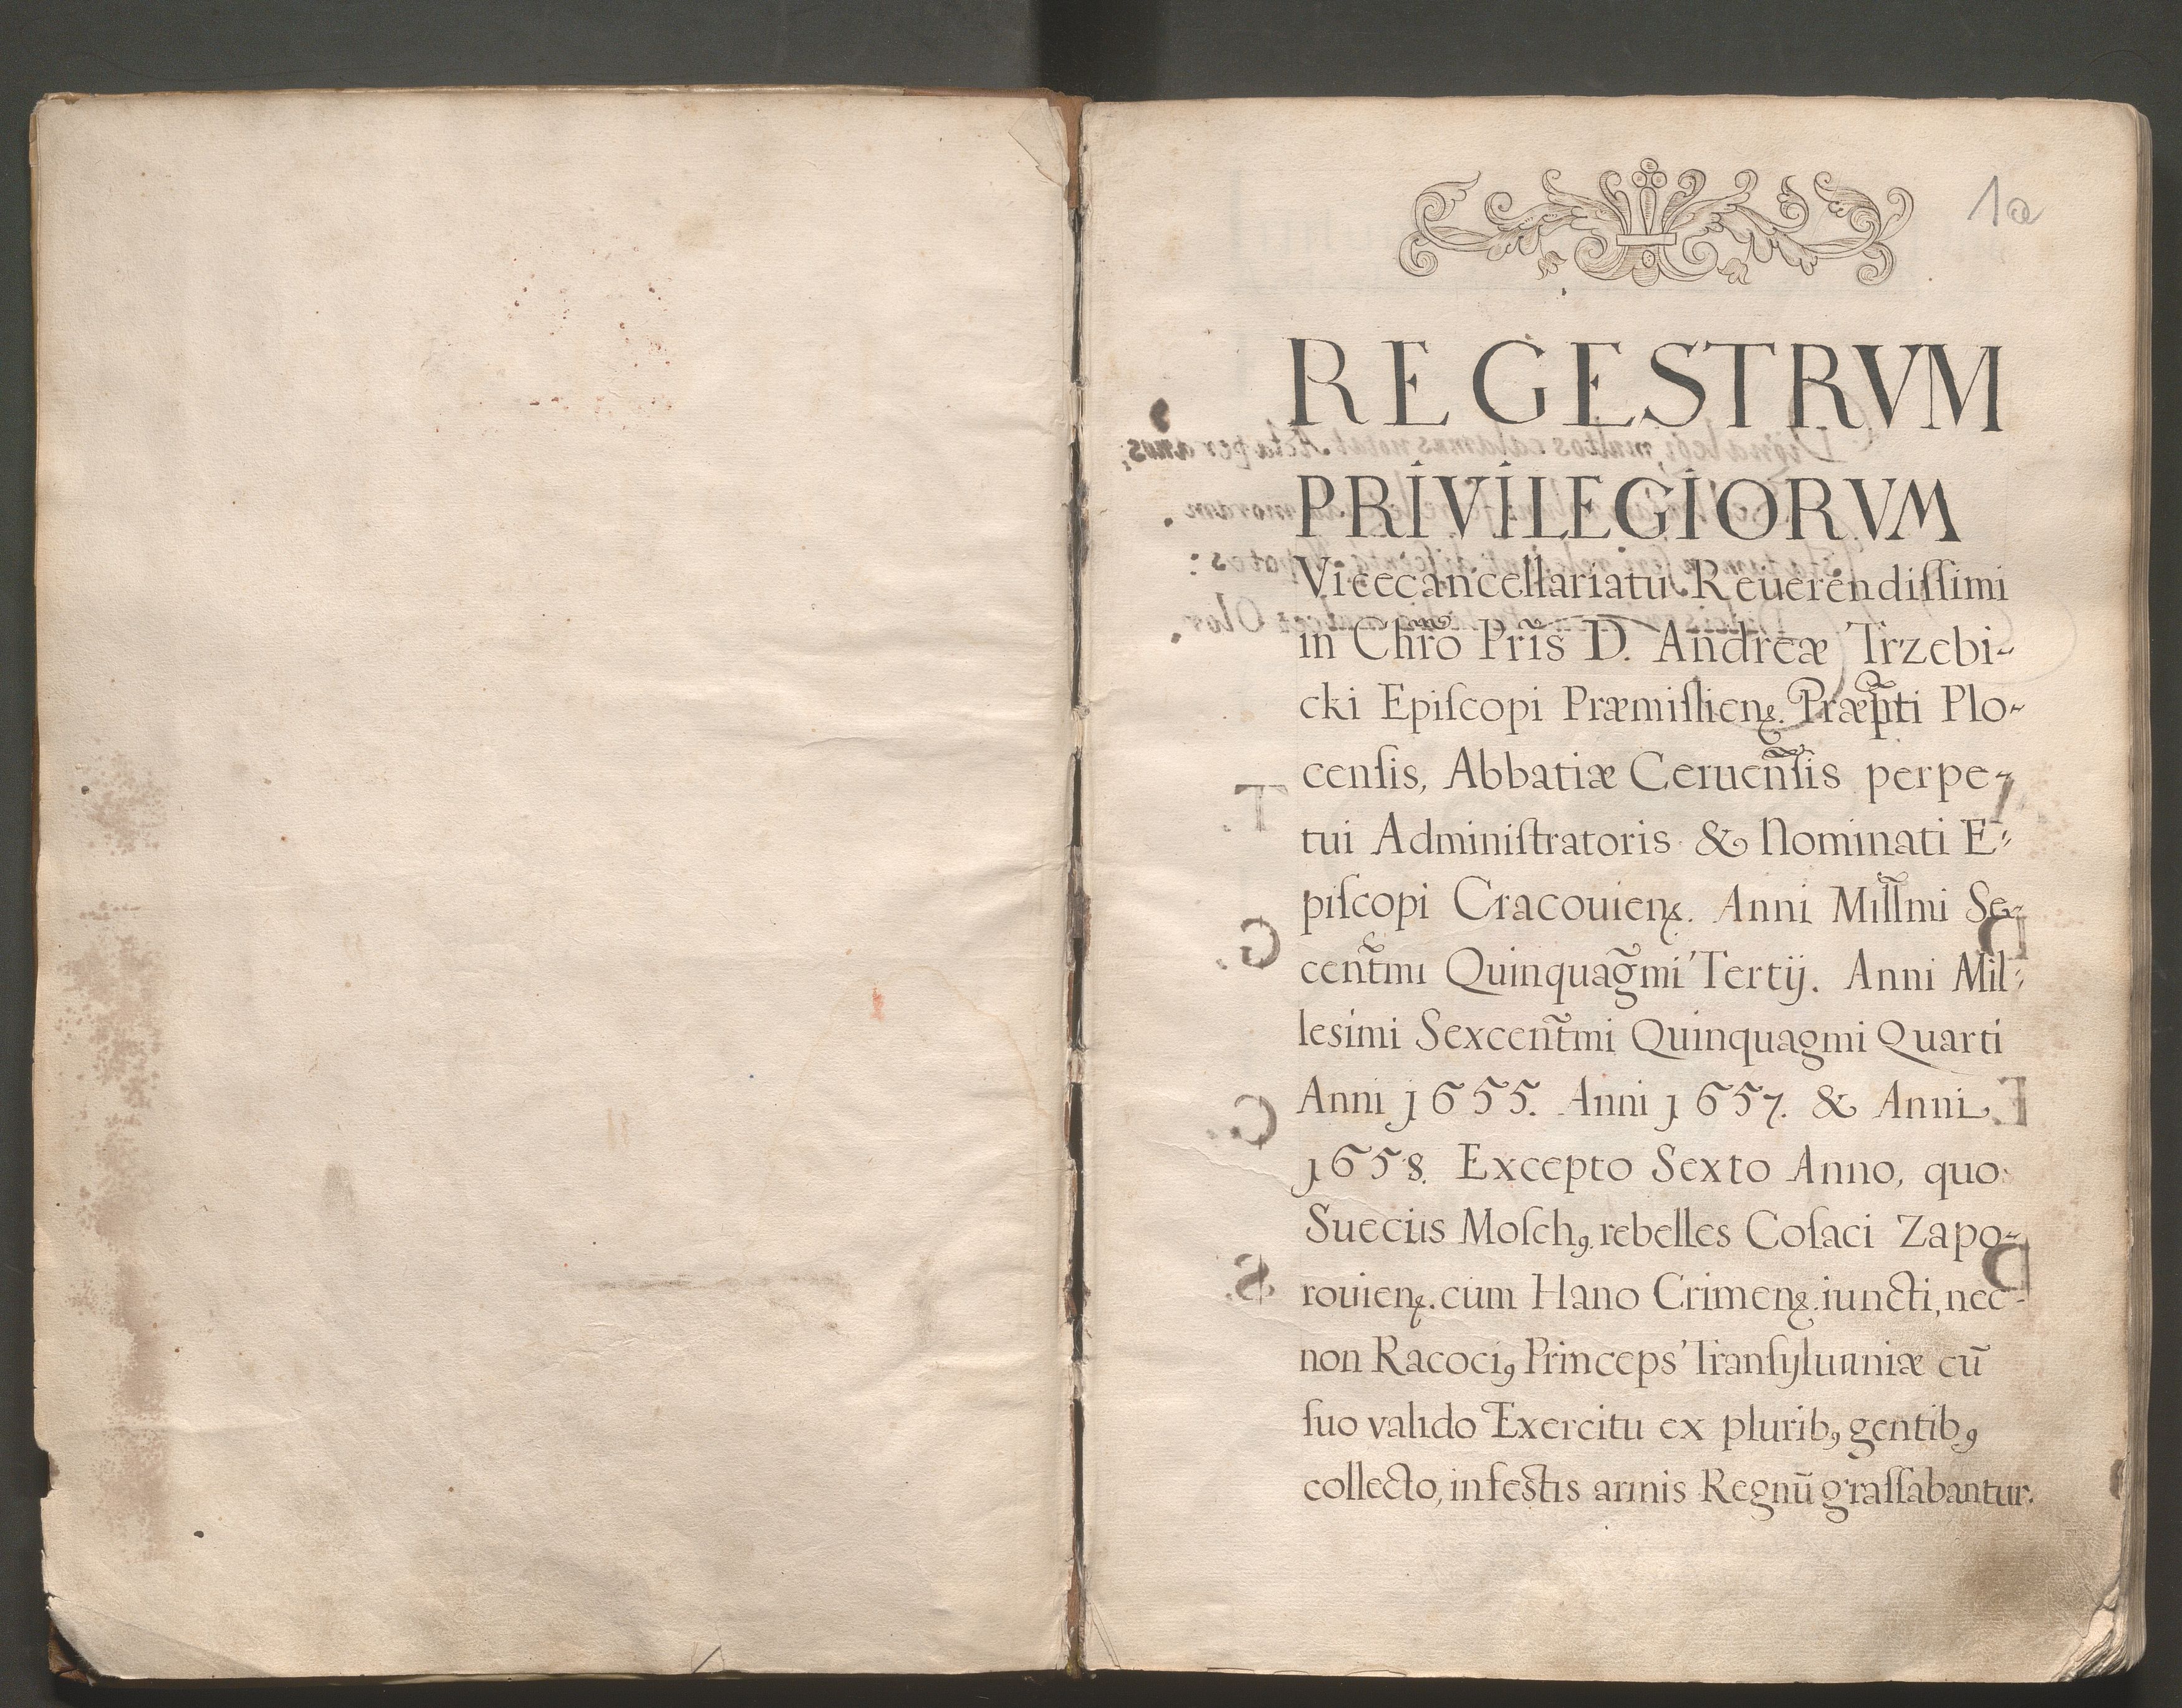 1a
REGESTRVM
PRIVILEGIORVM
Vicecancellariatu Reuerendiſſimi
in Chrō Pris̄ D. Andreæ Trzebi-
cki Epiſcopi Præmiſlien. Præp̄ti Plo-
cenſis, Abbatiæ Ceruen̄ſis perpe-
tui Adminiſtratoris & Nominati E-
piſcopi Cracouien. Anni Mill̄mi Se-
cent̄mi Quinquag̃mi Tertij. Anni Mil-
lesimi Sexcent̄mi Quinquagmi Quarti
Anni 1655. Anni 1657. & Anni
1658. Excepto Sexto Anno, quo
Sueciis Moſchꝰ rebelles Coſaci Zapo-
rouien. cum Hano Crimen. iuncti, nec-
non Racociꝰ Princeps Tranſyluaniæ cū
ſuo valido Exercitu ex pluribꝰ gentibꝰ
collecto, infestis armis Regnū graſſabantur.